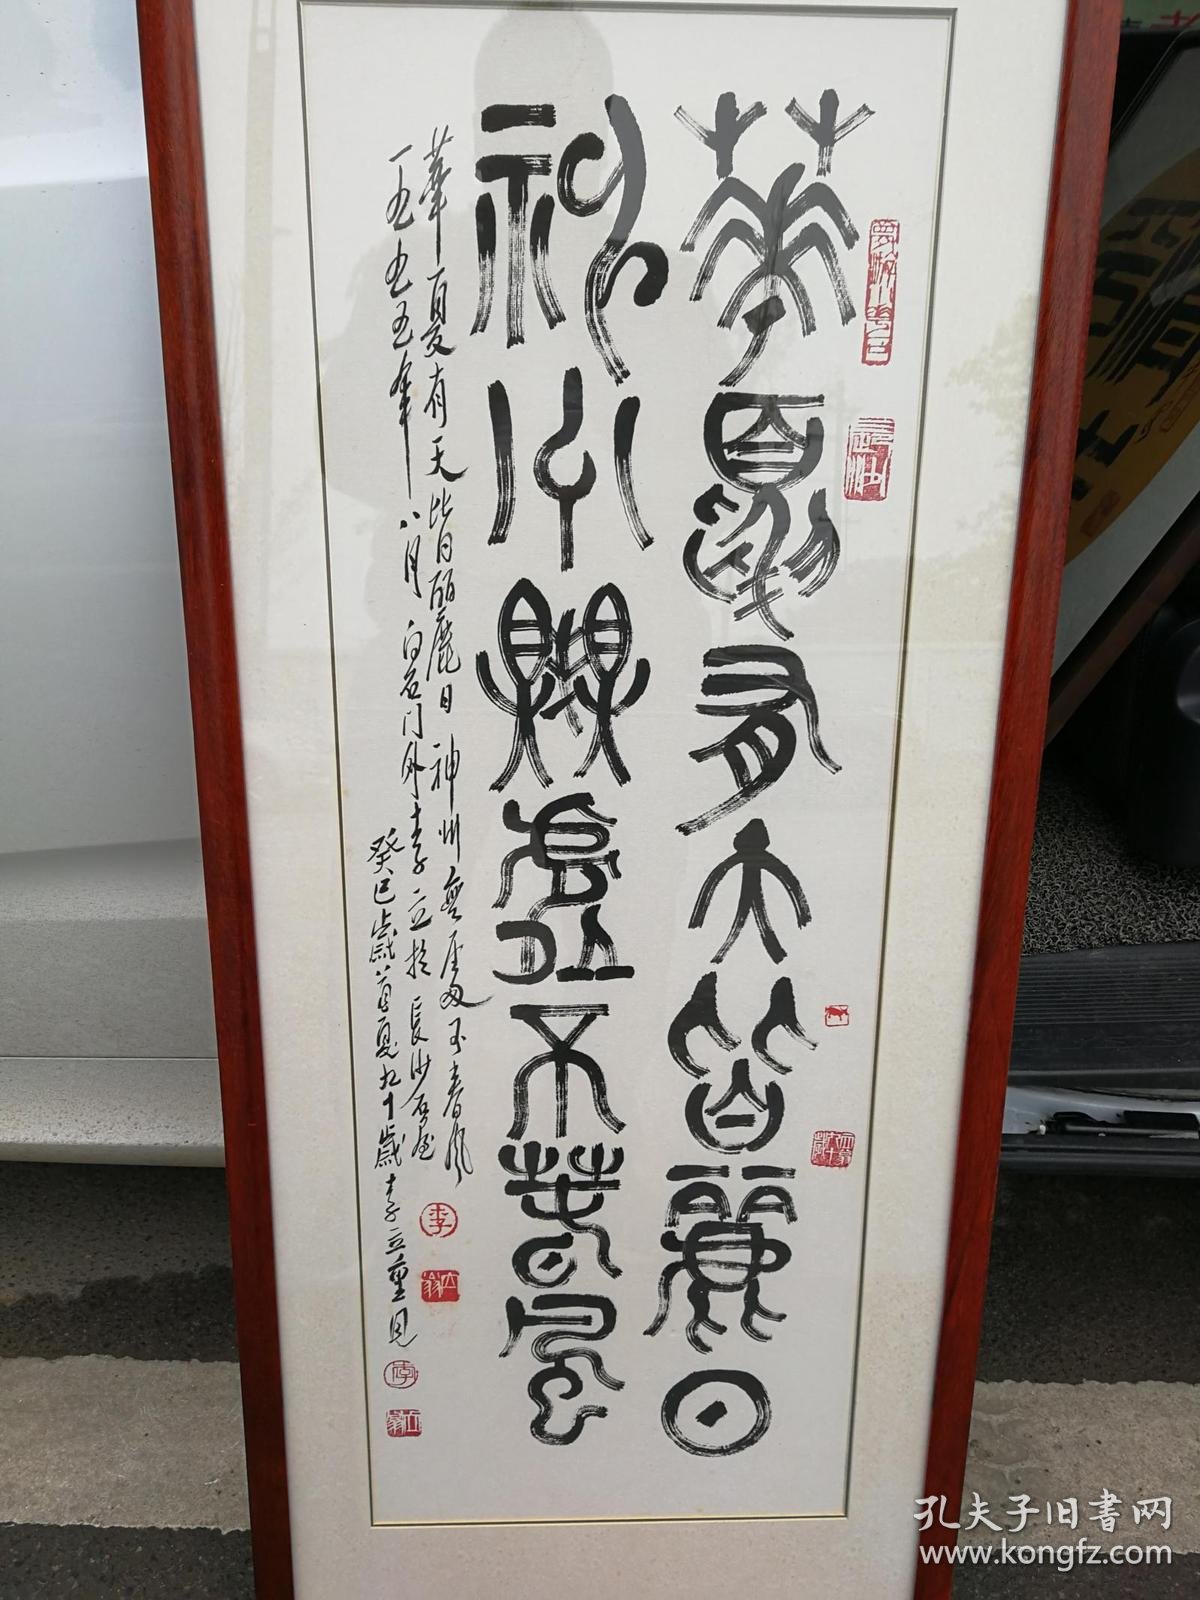 華夏有天皆麗日
神州無處不春風
華夏有天皆麗日 神州無處不春風
一九九五年八月白石門外李立於長沙石屋
癸巳歲首夏九十歲李立重見
李
立翁
李
立翁
孔夫子旧书网
www.kongfz.com